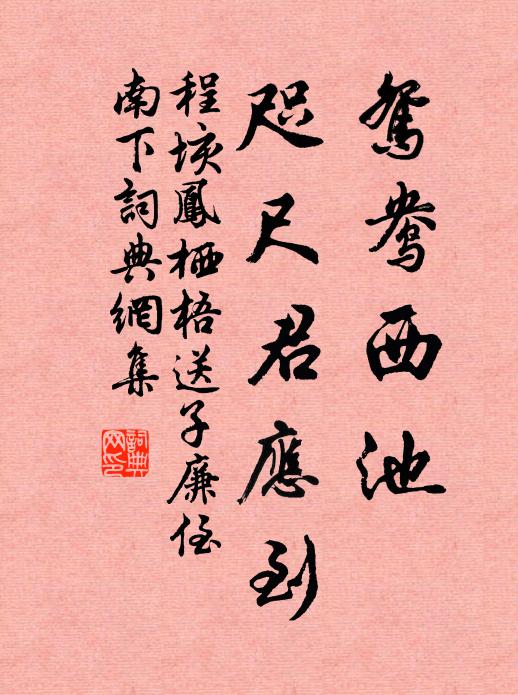 鴛鴦西池
咫尺君應到
程垓鳳栖梧送子廉侄
南下詞典網集
詞典網印